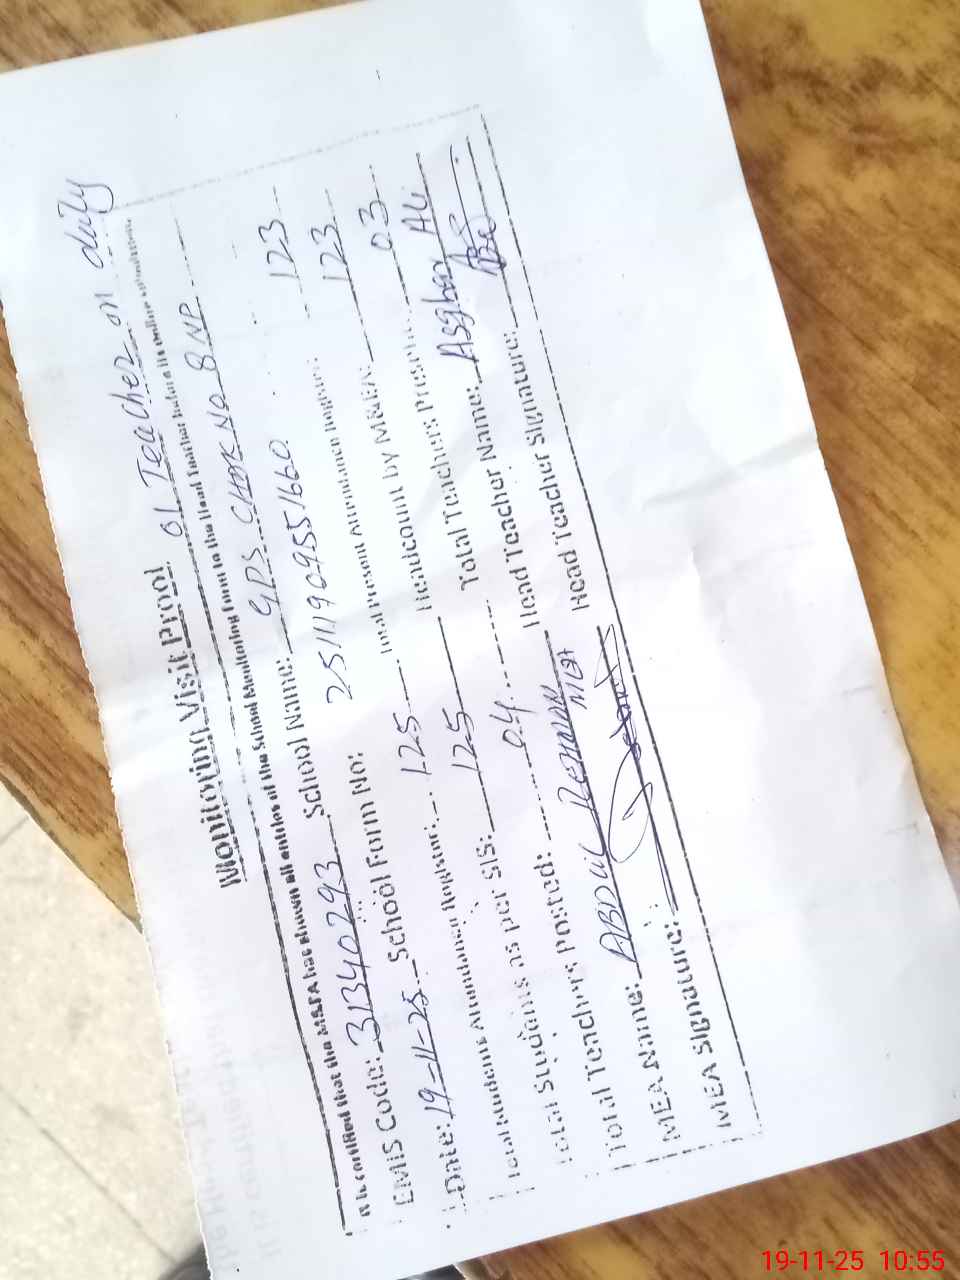 01 Teacher on duty
Monitoring Visit Proof
It is certified that the M&EA has shown all entries of the School Monitoring Form to the Head Teacher before its online submission
EMIS Code: 31340293 School Name: GPS CHAK NO 8 NP
Date: 19-11-25 School Form No: 25111909551660
Total Students Attendance Register: 125 Total Present Attendance Register: 123
Total Students as per SIS: 125 Headcount by M&EA: 123
Total Teachers Posted: 04 Total Teachers Present: 03
MEA Name: ABDUL REHMAN Head Teacher Name: Asghar Ali
MEA Signature: Head Teacher Signature:
19-11-25 10:55